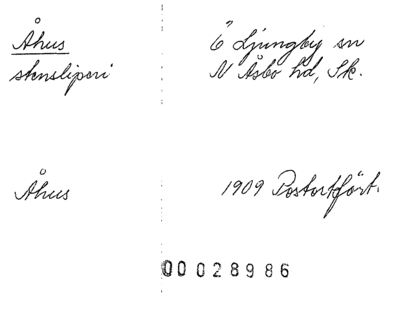 Åhus
stenslíperi
Ö Ljungby sn
N Åsbo hd, Sk.
Åhus
1909 Postortfört.
00028986